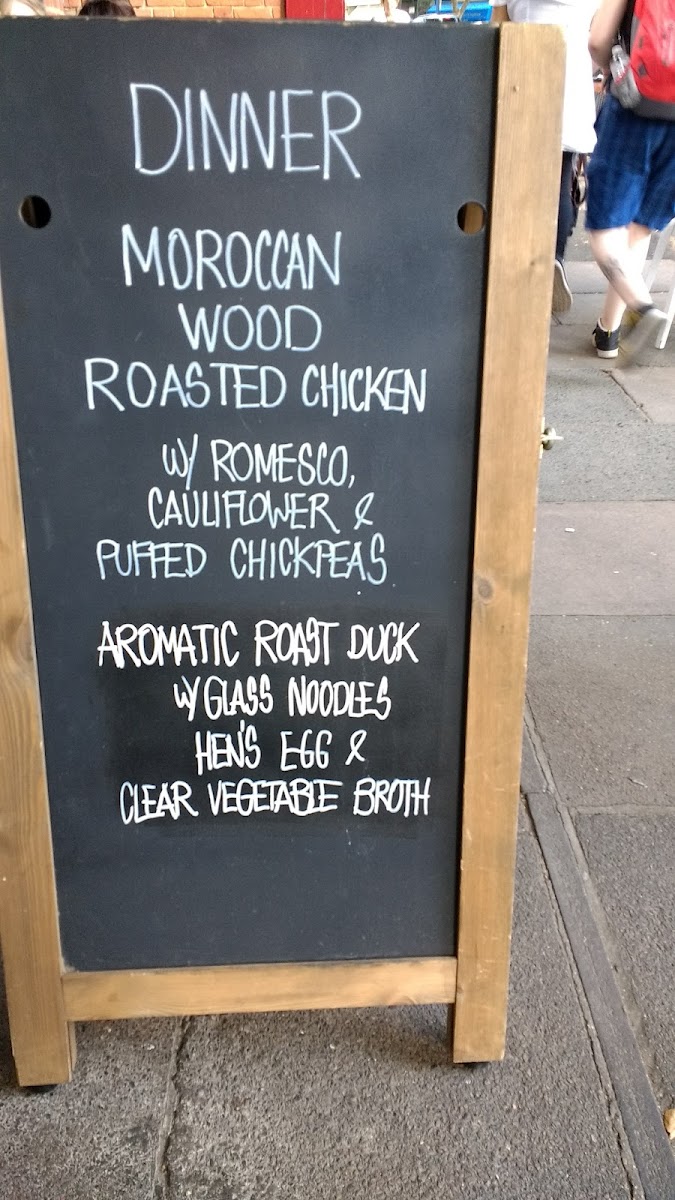 DINNER
MOROCCAN
WOOD
ROASTED CHICKEN
W/ ROMESCO,
CAULIFLOWER &
PUFFED CHICKPEAS
AROMATIC ROAST DUCK
W/ GLASS NOODLES
HEN'S EGG &
CLEAR VEGETABLE BROTH